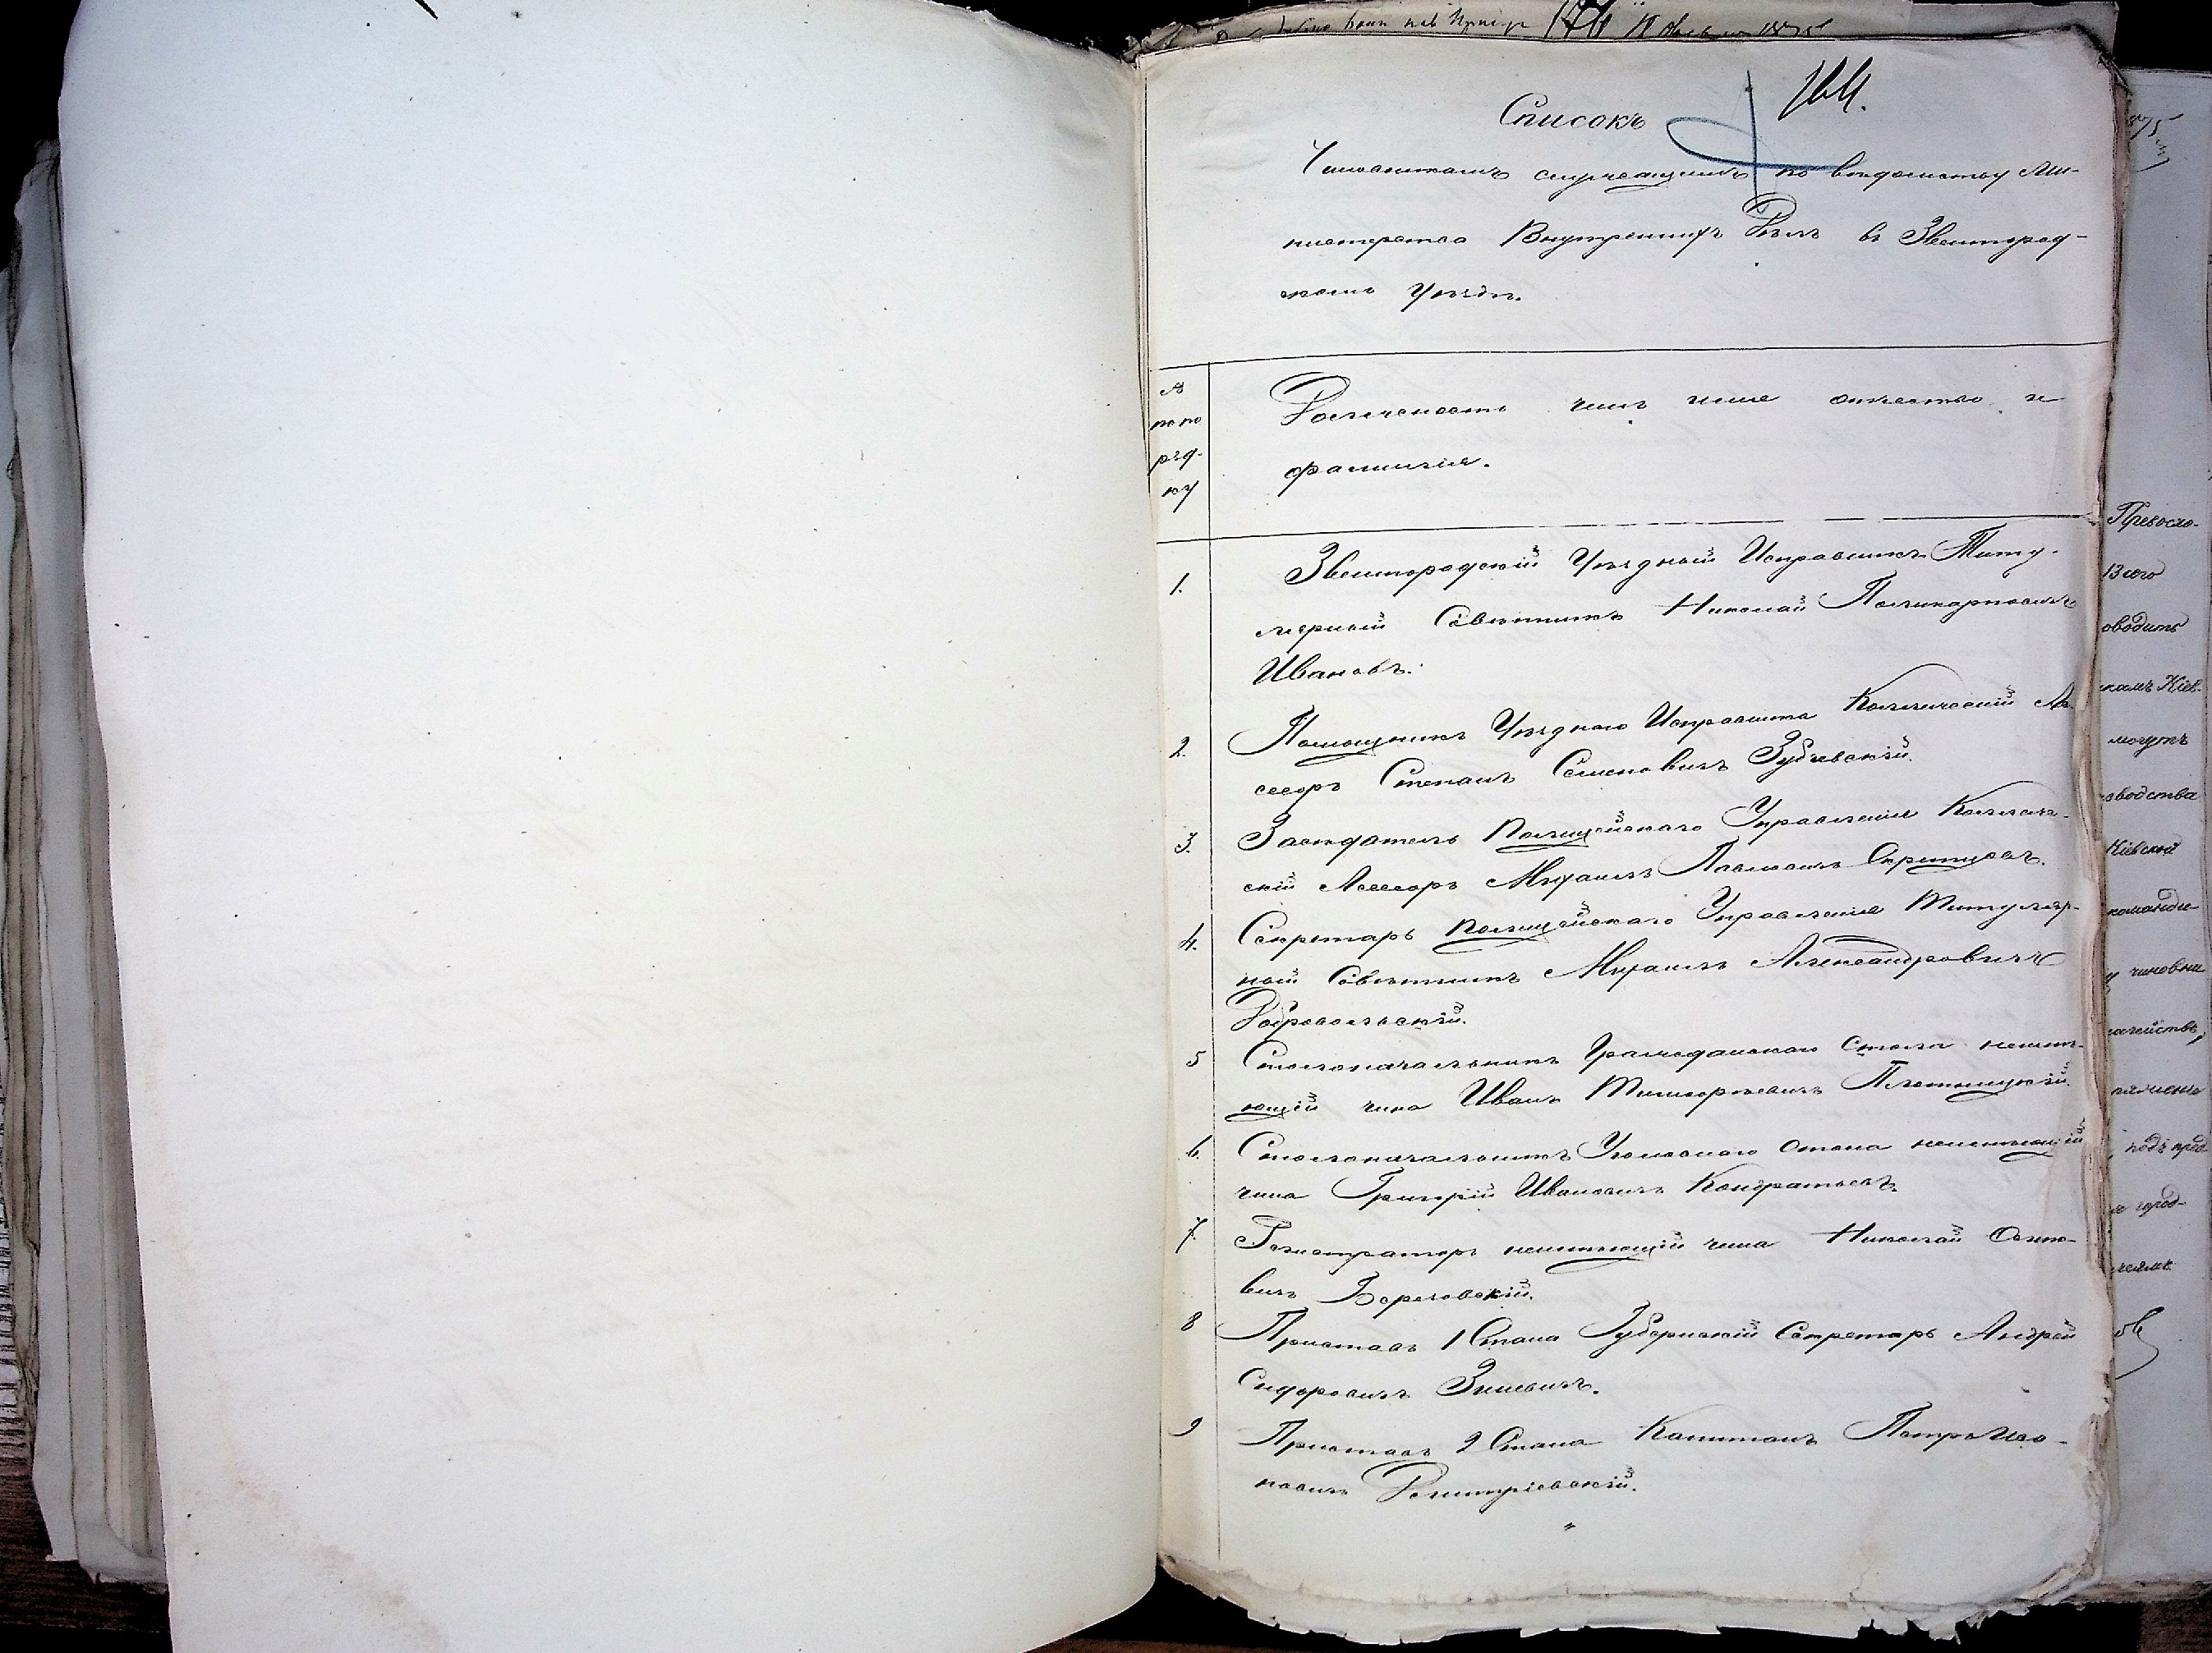 164.
Списокъ
Чиновникамъ служащимъ по вѣдомству Ми-
нистерства Внутреннихъ Дѣлъ въ Звенигород-
скомъ Уѣздѣ.
№
по по
ряд-
ку
Должность чинъ имя отчество и
фамилія.
1. Звенигородскій Уѣздный Исправникъ Титу-
лярный Совѣтникъ Николай Поликарповичъ
Ивановъ.
2. Помощникъ Уѣзднаго Исправника Коллежскій Ас-
сесоръ Степанъ Семеновичъ Зубчевскій.
3. Засѣдатель Полицейскаго Управленія Коллеж-
скій Асессоръ Михаилъ Павловичъ
4. Секретарь Полицейскаго Управленія Титуляр-
ный Совѣтникъ Михаилъ Александровичъ
Добровольскій.
5 Столоначальникъ Гражданскаго Стола неимѣ-
ющій чина Иванъ Плотницкій.
6. Столоначальникъ Уголовнаго Стола неимѣющій
чина Григорій Ивановичъ Кондратьевъ.
7. Регистраторъ неимѣющій чина Николай Осипо-
вичъ Березовскій.
8 Приставъ 1 Стана Губернскій Секретарь Андрей
Сидоровичъ Зиневичъ.
9 Приставъ 2 Стана Капитанъ Петръ Ива-
новичъ Димитріевскій.
Превосхо-
оводить
Кіев-
могутъ
зводства
Кіевской
команди-
чиновни